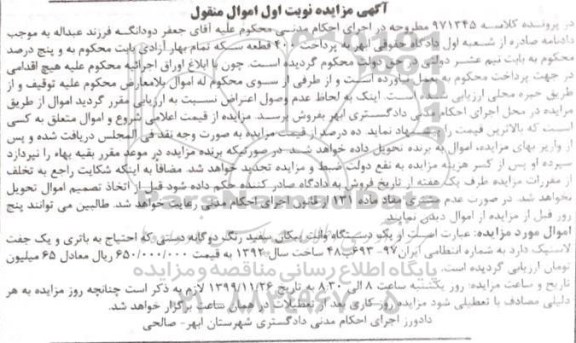 آگهی مزایده نوبت اول اموال منقول
در پرونده کلاسه ۹۷۱۳۴۵ مطروحه در اجرای احکام مدنی محکوم علیه آقای جعفر دودانگه فرزند عبداله به موجب
دادنامه صادره از شعبه اول دادگاه حقوقی ابهر به پرداخت ۴۰ قطعه سکه تمام بهار آزادی بابت محکوم به و پنج درصد
محکوم به بابت نیم عشر دولتی در حق دولت محکوم گردیده است. چون با ابلاغ اوراق اجرائیه محکوم علیه هیچ اقدامی
در جهت پرداخت محکوم به بعمل نیاورده است و از طرفی از سوی محکوم له اموال بلامعارض محکوم علیه توقیف و از
طریق خبره محلی ارزیابی است. اینک به لحاظ عدم وصول اعتراض نسبت به ارزیابی مقرر گردید اموال از طریق
مزایده در محل اجرای احکام مدنی دادگستری ابهر بفروش برسد. مزایده از قیمت اعلامی شروع و اموال متعلق به کسی
است که بالاترین قیمت را نماید. ده درصد از قیمت مزایده به صورت وجه نقد فی المجلس دریافت شده و پس
از واریز بهای مزایده، اموال به برنده تحویل داده خواهد شد. در صورتیکه برنده مزایده در موعد مقرر بقیه بهاء را نپردازد
سپرده او پس از کسر هزینه مزایده به نفع دولت ضبط و مزایده تجدید خواهد شد. مضافا به اینکه شکایت راجع به تخلف
از مقررات مزایده ظرف یک هفته از تاریخ فروش به دادگاه صادر کننده حکم داده شود قبل از اتخاذ تصمیم اموال تحویل
نخواهد شد. در صورت عدم مشتری مفاد ماده ۱۳۱ از قانون اجرای احکام مدنی رعایت خواهد شد. طالبین می توانند پنج
روز قبل از مزایده از اموال دیدن نمایند.
اموال مورد مزایده: عبارت است از یک دستگاه وانت پیکان سفید رنگ دوگانه دستی که احتیاج به باتری و یک جفت
لاستیک دارد به شماره انتظامی ایران۹۷- ۶۹۳ب۴۸ ساخت سال ۱۳۹۲ به قیمت ۶۵۰/۰۰۰/۰۰۰ ریال معادل ۶۵ میلیون
تومان ارزیابی گردیده است.
تاریخ و ساعت مزایده: روز یکشنبه ساعت ۸ الی ۸.۳۰ به تاریخ ۱۳۹۹/۱۱/۲۶ لازم به ذکر است چنانچه روز مزایده به هر
دلیلی مصادف با تعطیلی شود مزایده روز کاری بعد از تعطیلات در همان ساعت برگزار خواهد شد.
دادورز اجرای احکام مدنی دادگستری شهرستان ابهر- صالحی
پایگاه اطلاع رسانی مناقصه و مزایده